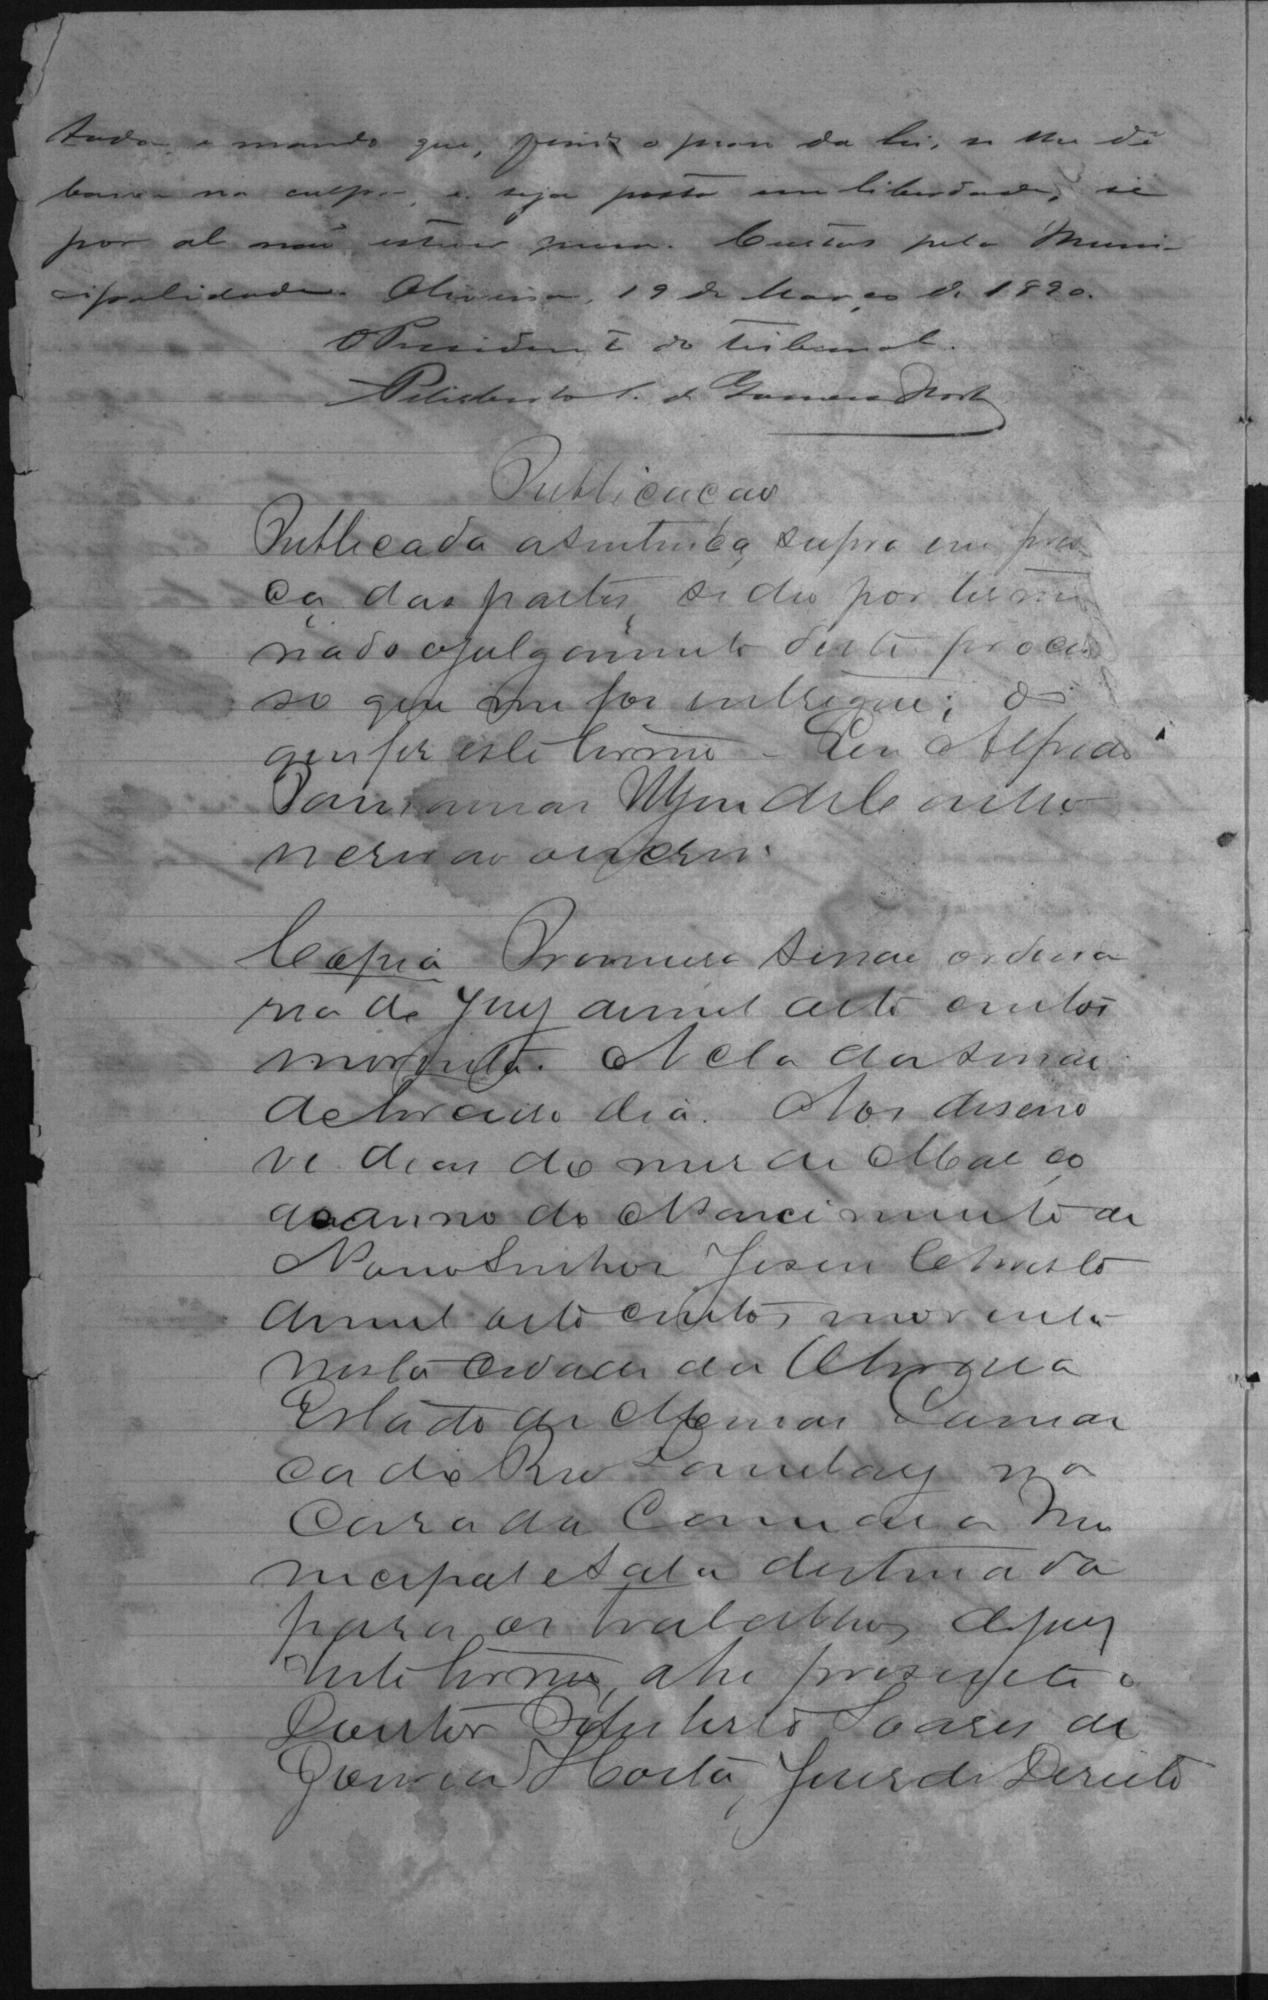 e mando que, findo o praso da lei, se lhe dê
baixa na culpa, e seja posto em liberdade, si
por al não estiver preso. Custas pela Muni-
cipalidade. Oliveira, 19 de Março de 1890.
O Presidente do Tribunal.
de Gouvea Horta
Publicação
Publicada a sentença supra em presen
ça das partes, se deo por termi
nado o julgamento deste proces
so que me foi entregue; do
que fiz este termo - Eu Alfredo
escrivão escrevi.
Copia Primeira sessão ordina
ria do Jury de mil oito centos
noventa. Acta da sessão
do dia. Aos deseno
ve dias do mes de Março
do anno do Nascimento de
Nosso Senhor Jesus Christo
de mil oito centos noventa
nesta cidade da Oliveira
Estado de Minas Comar
ca do Rio Lambary na
Casa da Camara Mu
nicipal e sala destinada
para os trabalhos do jury
neste termo, ahi presente o
Doutor Soares de
Gouvea Horta, Juis de Direito